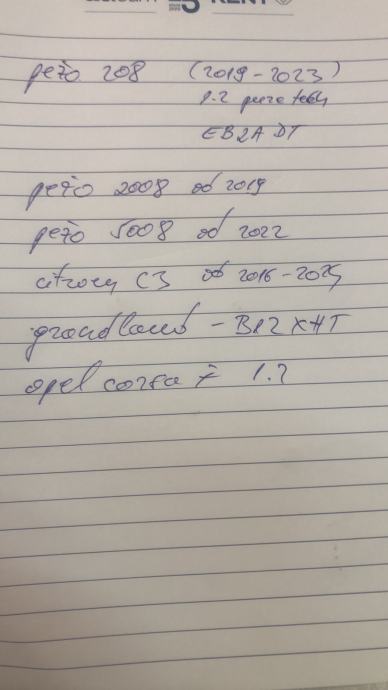 RENT
pežo 208 (2019-2023)
1.2 pure tech
EB2A DT
pežo 2008 od 2019
pežo 5008 od 2022
citroen C3 od 2016-2025
grandland - B12XHT
opel corsa F 1.2